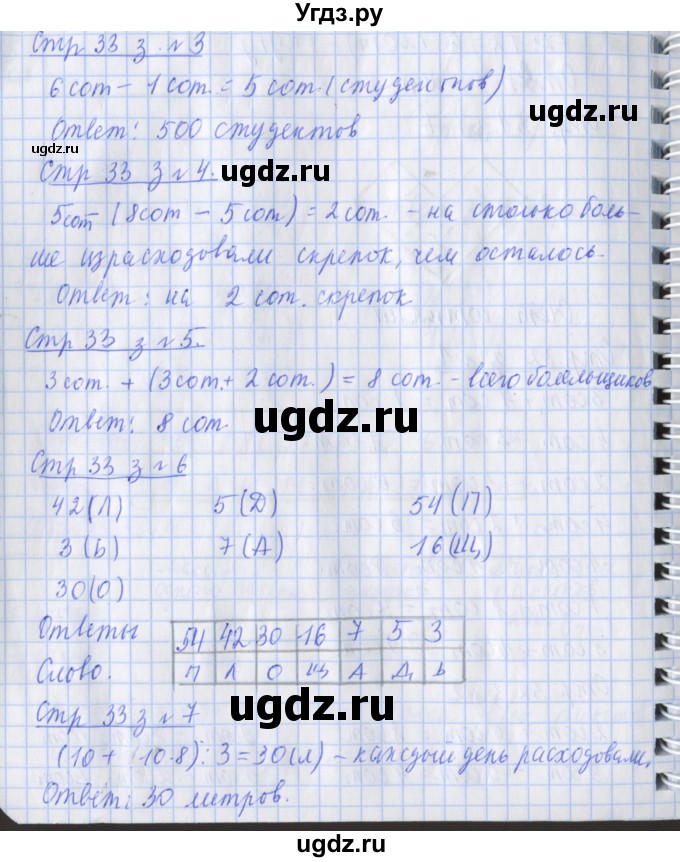 Угдз.ру
Стр 33 з. №3
6 сот – 1 сот. = 5 сот. (студентов)
Ответ: 500 студентов
угдз.ру
ugdz.ru
ugdz.ru
Стр 33 з №4.
5 сот – (8 сот – 5 сот) = 2 сот. – на столько боль-
ше израсходовали скрепок, чем осталось.
Ответ: на 2 сот. скрепок
ugdz.ru
Стр 33 з №5.
3 сот. + (3 сот. + 2 сот.) = 8 сот. – всего болельщиков
Ответ: 8 сот.
ugdz.ru
Стр 33 з №6
42 (Л) 5 (Д) 54 (П)
3 (Ь) 7 (А) 16 (Щ)
30 (О)
ugdz.ru
Ответы 54 42 30 16 7 5 3
Слово. П Л О Щ А Д Ь
Стр 33 з №7
ugdz.ru
(10 + 10·8) : 3 = 30 (л) – каждый день расходовали,
Ответ: 30 литров.
ugdz.ru
ugdz.ru